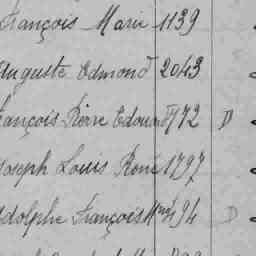 François Marie 1139
Auguste Edmond 2043
François Pierre Edouard 1772 D
Joseph Louis René 1797
Adolphe François 194 D